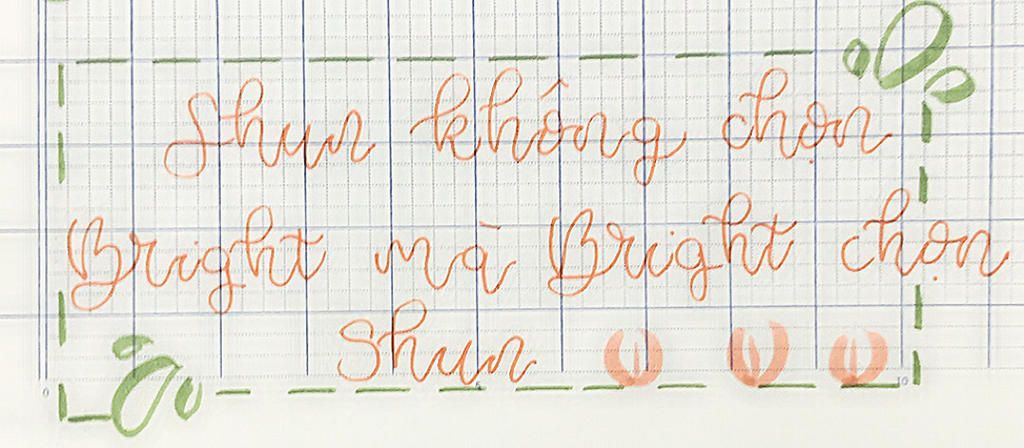 Shun không chọn
Bright mà Bright chọn
Shun